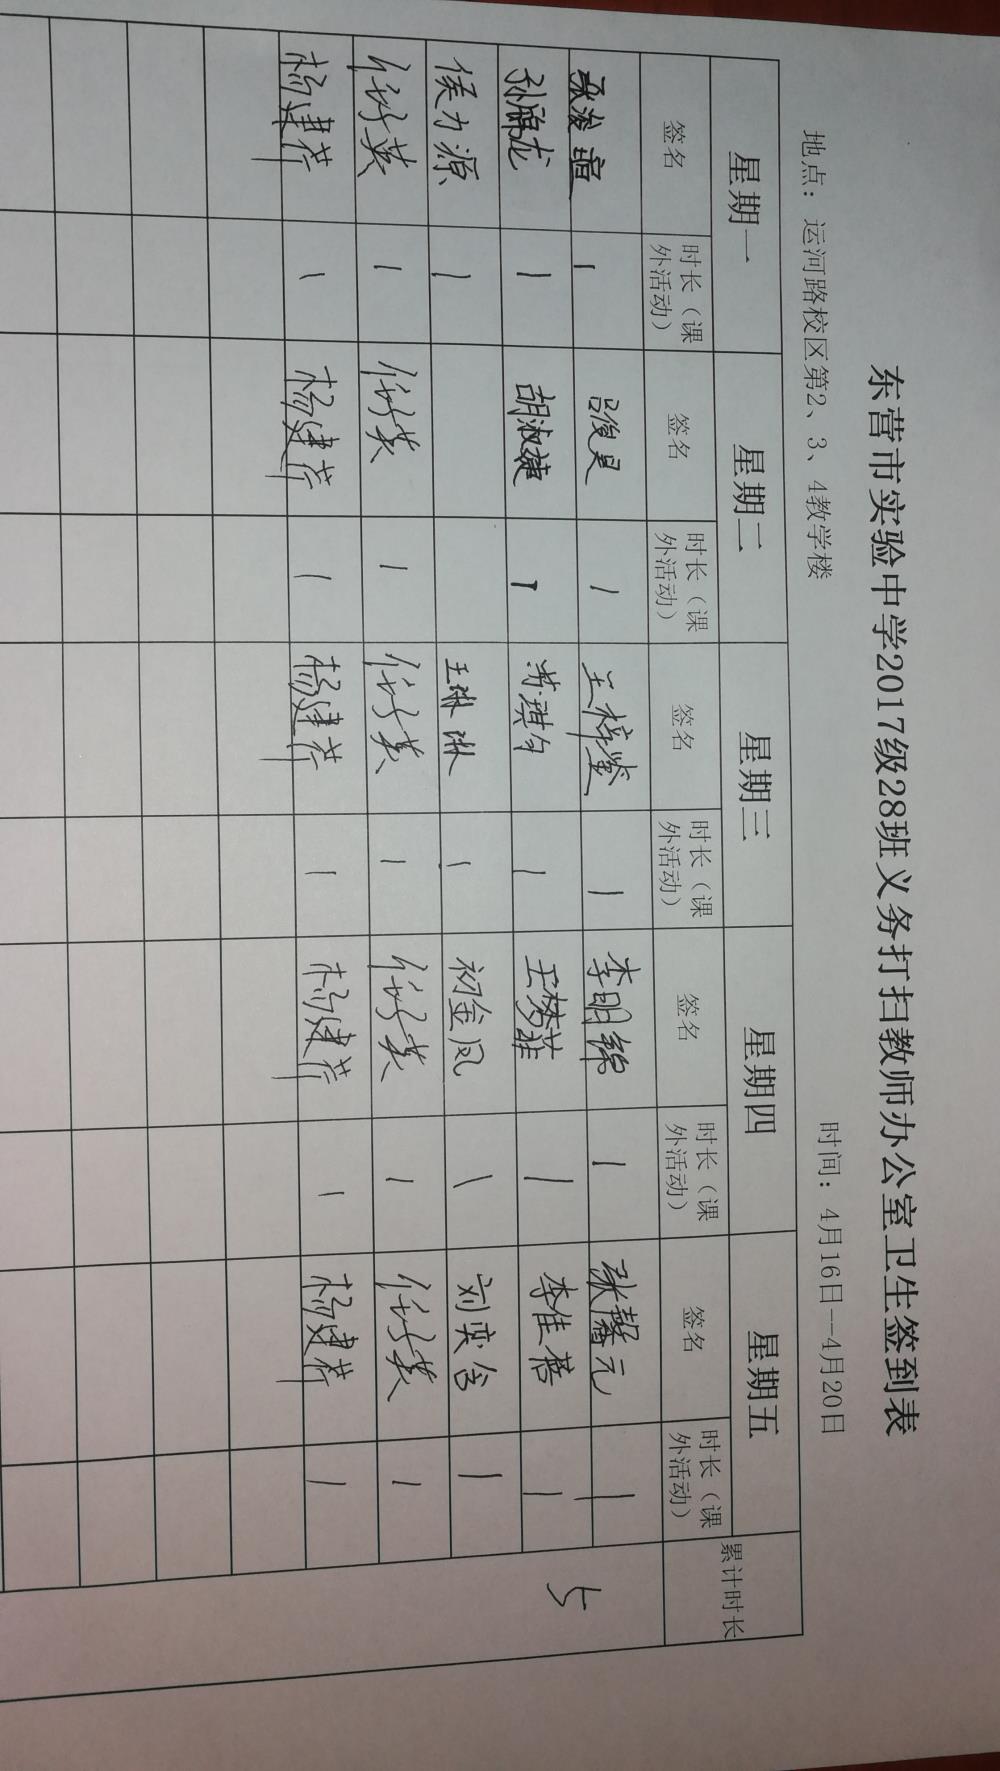 东营市实验中学2017级28班义务打扫教师办公室卫生签到表
地点：运河路校区第2、3、4教学楼 时间：4月16日—4月20日
星期一 星期二 星期三 星期四 星期五 累计时长
签名 时长（课外活动） 签名 时长（课外活动） 签名 时长（课外活动） 签名 时长（课外活动） 签名 时长（课外活动）
1 吕俊昊 1 王梓鉴 1 李明锦 1 张馨元 1 5
孙鹏龙 1 胡淑婕 1 1 王梦菲 1 李佳蓓 1
侯力源 1 王琳琳 1 初金凤 1 刘奕含 1
任英 1 任英 1 任英 1 任英 1 任英 1
杨建荐 1 杨建荐 1 杨建荐 1 杨建荐 1 杨建荐 1